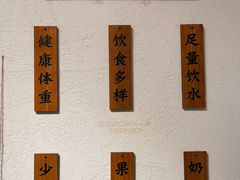 足量饮水
饮食多样
健康体重
奶
果
少